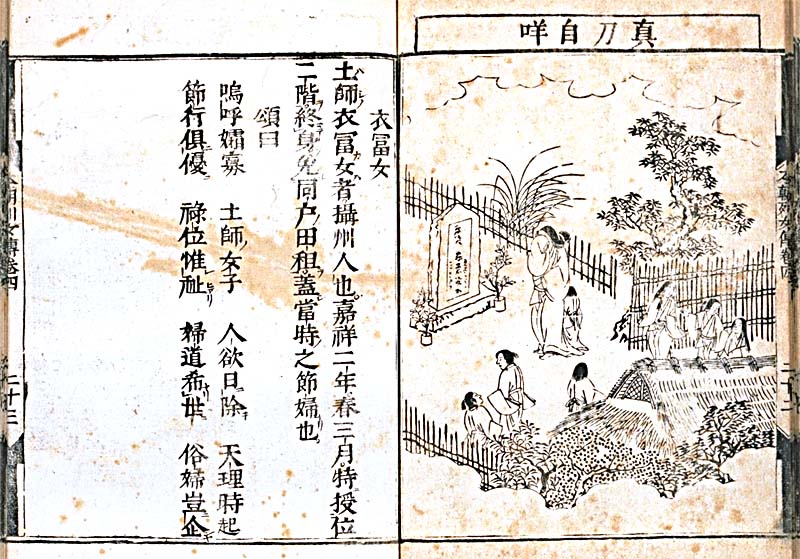 真刀自咩
衣冨女
土師衣冨女者攝州人也嘉祥二年春三月特授位
二階終身免同戸田租蓋當時之節婦也
頌曰
嗚呼孀寡 土師女子 人欲日除 天理時起
節行倶優 祿位惟祉 婦道希世 俗婦豈企
二十三